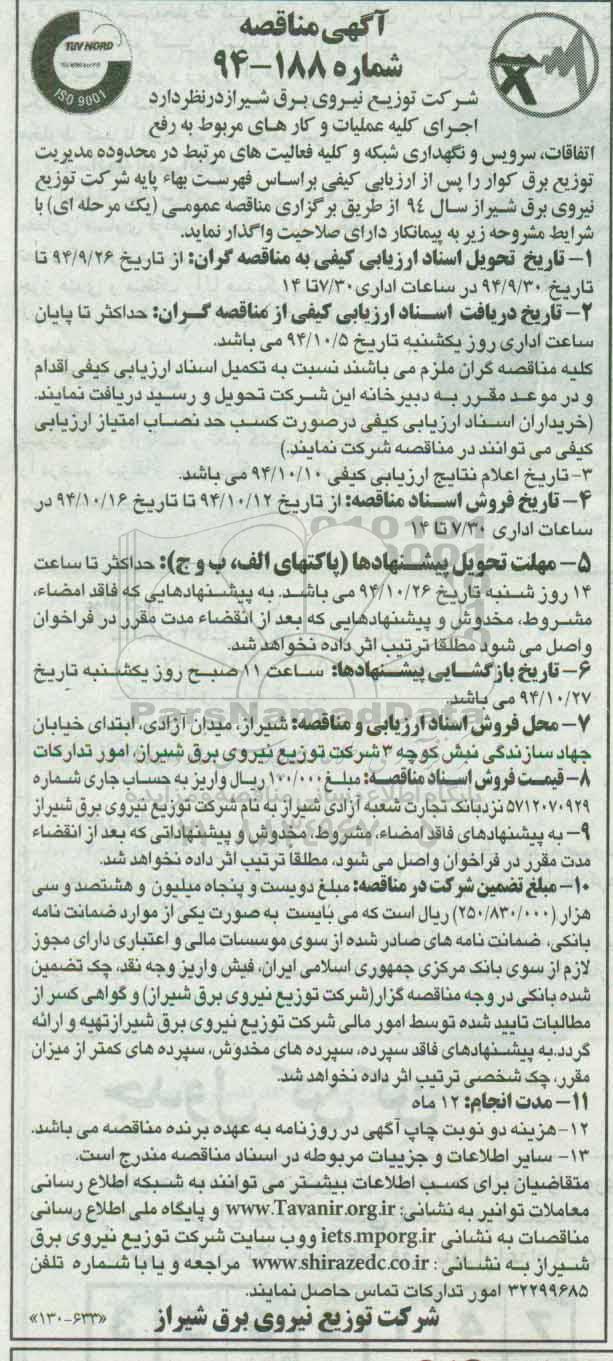 آگهی مناقصه
شماره ۱۸۸-۹۴
TUV NORD
ISO 9001
شرکت توزیع نیروی برق شیراز درنظر دارد
اجرای کلیه عملیات و کار های مربوط به رفع
اتفاقات، سرویس و نگهداری شبکه و کلیه فعالیت های مرتبط در محدوده مدیریت
توزیع برق کوار را پس از ارزیابی کیفی براساس فهرست بهاء پایه شرکت توزیع
نیروی برق شیراز سال ۹۴ از طریق برگزاری مناقصه عمومی (یک مرحله ای) با
شرایط مشروحه زیر به پیمانکار دارای صلاحیت واگذار نماید.
۱- تاریخ تحویل اسناد ارزیابی کیفی به مناقصه گران: از تاریخ ۹۴/۹/۲۶ تا
تاریخ ۹۴/۹/۳۰ در ساعات اداری ۷/۳۰ تا ۱۴
۲- تاریخ دریافت اسناد ارزیابی کیفی از مناقصه گران: حداکثر تا پایان
ساعت اداری روز یکشنبه تاریخ ۹۴/۱۰/۵ می باشد.
کلیه مناقصه گران ملزم می باشند نسبت به تکمیل اسناد ارزیابی کیفی اقدام
و در موعد مقرر به دبیرخانه این شرکت تحویل و رسید دریافت نمایند.
(خریداران اسناد ارزیابی کیفی درصورت کسب حد نصاب امتیاز ارزیابی
کیفی می توانند در مناقصه شرکت نمایند.)
۳- تاریخ اعلام نتایج ارزیابی کیفی ۹۴/۱۰/۱۰ می باشد.
۴- تاریخ فروش اسناد مناقصه: از تاریخ ۹۴/۱۰/۱۲ تا تاریخ ۹۴/۱۰/۱۶ در
ساعات اداری ۷/۳۰ تا ۱۴
۵- مهلت تحویل پیشنهادها (پاکتهای الف، ب و ج): حداکثر تا ساعت
۱۴ روز شنبه تاریخ ۹۴/۱۰/۲۶ می باشد. به پیشنهادهایی که فاقد امضاء،
مشروط، مخدوش و پیشنهادهایی که بعد از انقضاء مدت مقرر در فراخوان
واصل می شود مطلقا ترتیب اثر داده نخواهد شد.
۶- تاریخ بازگشایی پیشنهادها: ساعت ۱۱ صبح روز یکشنبه تاریخ
۹۴/۱۰/۲۷ می باشد.
ParsNamadData
۷- محل فروش اسناد ارزیابی و مناقصه: شیراز، میدان آزادی، ابتدای خیابان
جهاد سازندگی نبش کوچه ۳ شرکت توزیع نیروی برق شیراز، امور تدارکات
۸- قیمت فروش اسناد مناقصه: مبلغ ۱۰۰/۰۰۰ ریال واریز به حساب جاری شماره
۵۷۱۲۰۷۰۹۲۹ نزد بانک تجارت شعبه آزادی شیراز به نام شرکت توزیع نیروی برق شیراز
۹- به پیشنهادهای فاقد امضاء، مشروط، مخدوش و پیشنهاداتی که بعد از انقضاء
مدت مقرر در فراخوان واصل می شود، مطلقا ترتیب اثر داده نخواهد شد.
۱۰- مبلغ تضمین شرکت در مناقصه: مبلغ دویست و پنجاه میلیون و هشتصد و سی
هزار (۲۵۰/۸۳۰/۰۰۰) ریال است که می بایست به صورت یکی از موارد ضمانت نامه
بانکی، ضمانت نامه های صادر شده از سوی موسسات مالی و اعتباری دارای مجوز
لازم از سوی بانک مرکزی جمهوری اسلامی ایران، فیش واریز وجه نقد، چک تضمین
شده بانکی در وجه مناقصه گزار (شرکت توزیع نیروی برق شیراز) و گواهی کسر از
مطالبات تایید شده توسط امور مالی شرکت توزیع نیروی برق شیراز تهیه و ارائه
گردد. به پیشنهادهای فاقد سپرده، سپرده های مخدوش، سپرده های کمتر از میزان
مقرر، چک شخصی ترتیب اثر داده نخواهد شد.
۱۱- مدت انجام: ۱۲ ماه
۱۲- هزینه دو نوبت چاپ آگهی در روزنامه به عهده برنده مناقصه می باشد.
۱۳- سایر اطلاعات و جزییات مربوطه در اسناد مناقصه مندرج است.
متقاضیان برای کسب اطلاعات بیشتر می توانند به شبکه اطلاع رسانی
معاملات توانیر به نشانی: www.Tavanir.org.ir و پایگاه ملی اطلاع رسانی
مناقصات به نشانی iets.mporg.ir ووب سایت شرکت توزیع نیروی برق
شیراز به نشانی: www.shirazedc.co.ir مراجعه و یا با شماره تلفن
۳۲۲۹۹۶۸۵ امور تدارکات تماس حاصل نمایند.
شرکت توزیع نیروی برق شیراز «۱۳۰-۶۳۳»